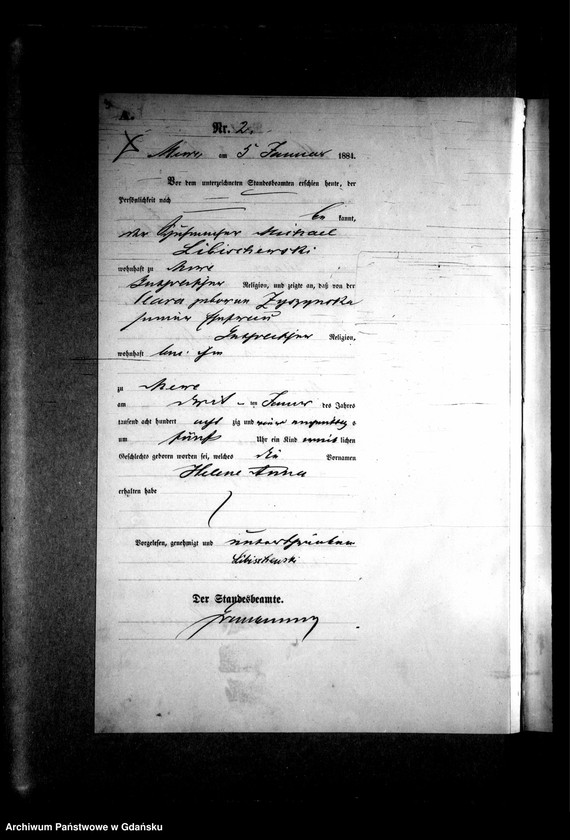 A.
Nr. 2.
Mewe, am 5 Januar 1884.
Vor dem unterzeichneten Standesbeamten erschien heute, der
Persönlichkeit nach
be kannt,
der Michael
Libischewski
wohnhaft zu Mewe
Religion, und zeigte an, daß von der
Clara geborene Zyszynska
seiner Ehefrau
Religion,
wohnhaft bei ihm
zu Mewe
am Januar des Jahres
tausend acht hundert acht zig und
um fünf Uhr ein Kind weib lichen
Geschlechts geboren worden sei, welches die Vornamen
Helene Anna
erhalten habe
Vorgelesen, genehmigt und unterschrieben
Libischewski
Der Standesbeamte.
Archiwum Państwowe w Gdańsku